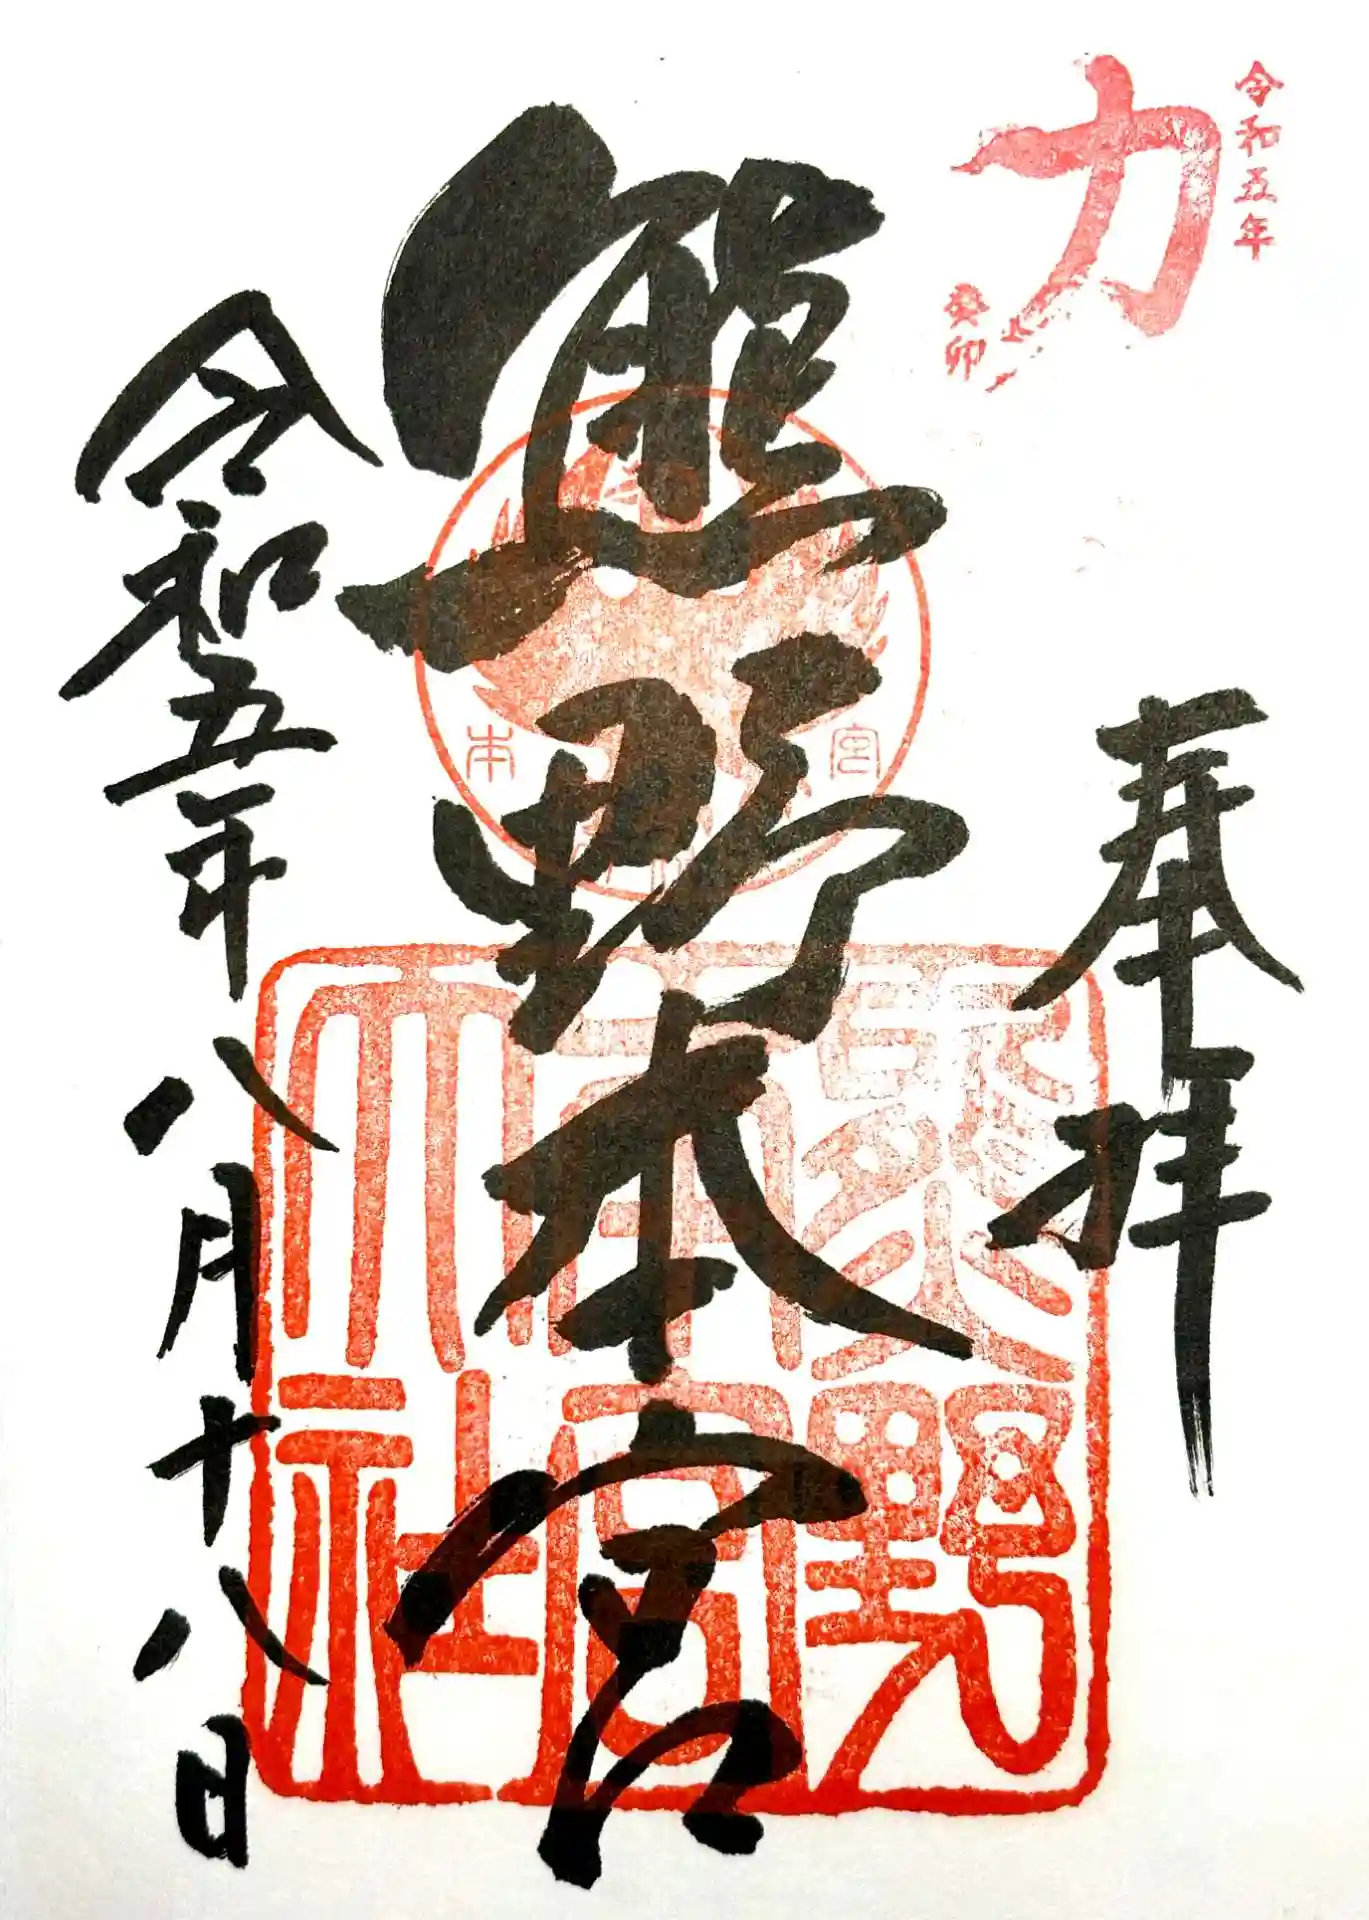 令和五年
力
癸卯
奉拝
熊野本宮
本
宮
熊野
本宮
大社
令和五年八月十八日